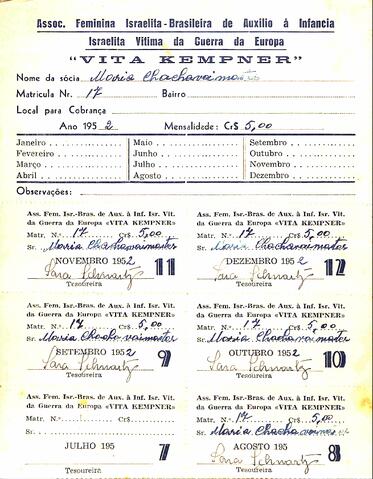 Assoc. Feminina Israelita-Brasileira de Auxilio á Infancia
Israelita Vitima da Guerra da Europa
"VITA KEMPNER"
Nome da sócia Maria Chachavaimaster
Matricula Nr. 17 Bairro
Local para Cobrança
Ano 1952 Mensalidade: Cr$ 5,00
Janeiro Maio Setembro
Fevereiro Junho Outubro
Março Julho Novembro
Abril Agosto Dezembro
Observações:
Ass. Fem. Isr-Bras. de Aux. à Inf. Isr. Vit.
da Guerra da Europa «VITA KEMPNER»
Matr. N.º 17 Cr$ 5,00
Sr. Maria Chachavaimaster
NOVEMBRO 1952 11
Sara Schwartz
Tesoureira
Ass. Fem. Isr-Bras. de Aux. à Inf. Isr. Vit.
da Guerra da Europa «VITA KEMPNER»
Matr. N.º 17 Cr$ 5,00
Sr. Maria Chachavaimaster
DEZEMBRO 1952 12
Sara Schwartz
Tesoureira
Ass. Fem. Isr-Bras. de Aux. à Inf. Isr. Vit.
da Guerra da Europa «VITA KEMPNER»
Matr. N.º 17 Cr$ 5,00
Sr. Maria Chachavaimaster
SETEMBRO 1952 9
Sara Schwartz
Tesoureira
Ass. Fem. Isr-Bras. de Aux. à Inf. Isr. Vit.
da Guerra da Europa «VITA KEMPNER»
Matr. N.º 17 Cr$ 5,00
Sr. Maria Chachavaimaster
OUTUBRO 1952 10
Sara Schwartz
Tesoureira
Ass. Fem. Isr-Bras. de Aux. à Inf. Isr. Vit.
da Guerra da Europa «VITA KEMPNER»
Matr. N.º Cr$
Sr.
JULHO 195 7
Tesoureira
Ass. Fem. Isr-Bras. de Aux. à Inf. Isr. Vit.
da Guerra da Europa «VITA KEMPNER»
Matr. N.º 17 Cr$ 5,00
Sr. Maria
AGOSTO 195 8
Sara Schwartz
Tesoureira